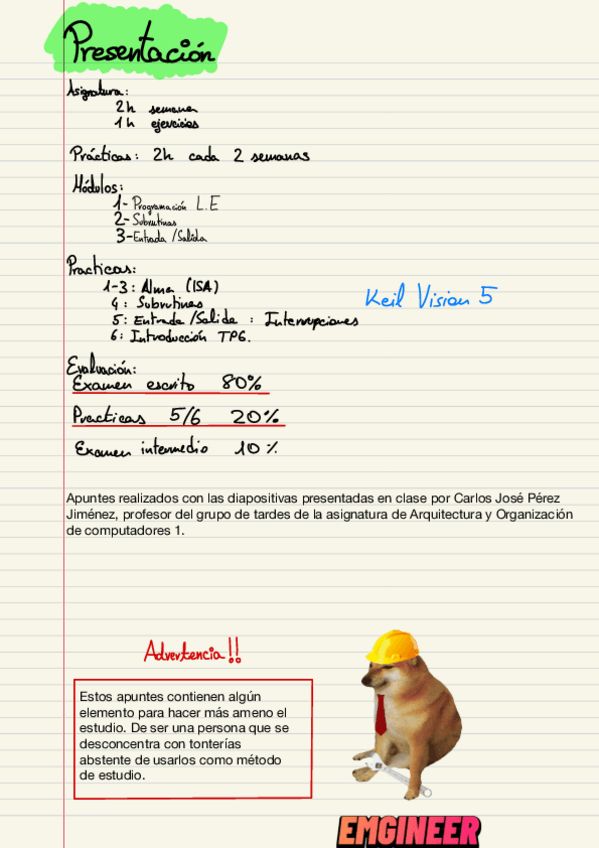 Presentación
Asignatura:
2h semana
1h ejercicios
Prácticas: 2h cada 2 semanas
Módulos:
1- Programación L.E
2- Subrutinas
3- Entrada/Salida
Practicas:
1-3: Alma (ISA)
4: Subrutines
5: Entrada/Salida : Interrupciones
6: Introducción TPG.
Keil Vision 5
Evaluación:
Examen escrito 80%
Practicas 5/6 20%
Examen intermedio 10%
Apuntes realizados con las diapositivas presentadas en clase por Carlos José Pérez
Jiménez, profesor del grupo de tardes de la asignatura de Arquitectura y Organización
de computadores 1.
Advertencia!!
Estos apuntes contienen algún
elemento para hacer más ameno el
estudio. De ser una persona que se
desconcentra con tonterías
abstente de usarlos como método
de estudio.
EMGINEER